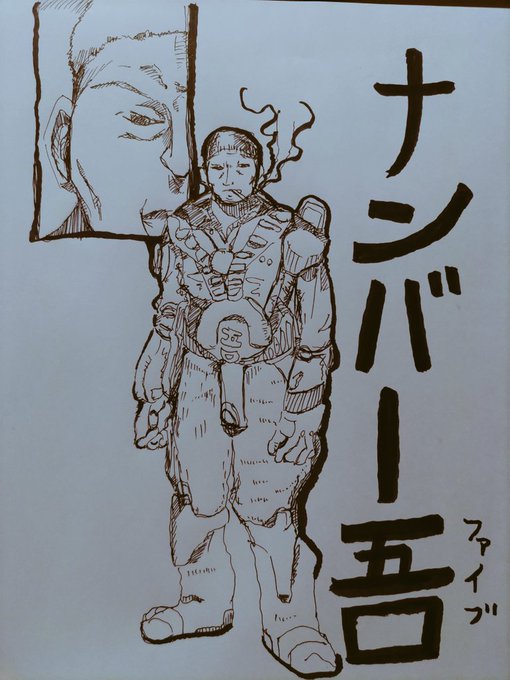 ナンバー吾
ファイブ